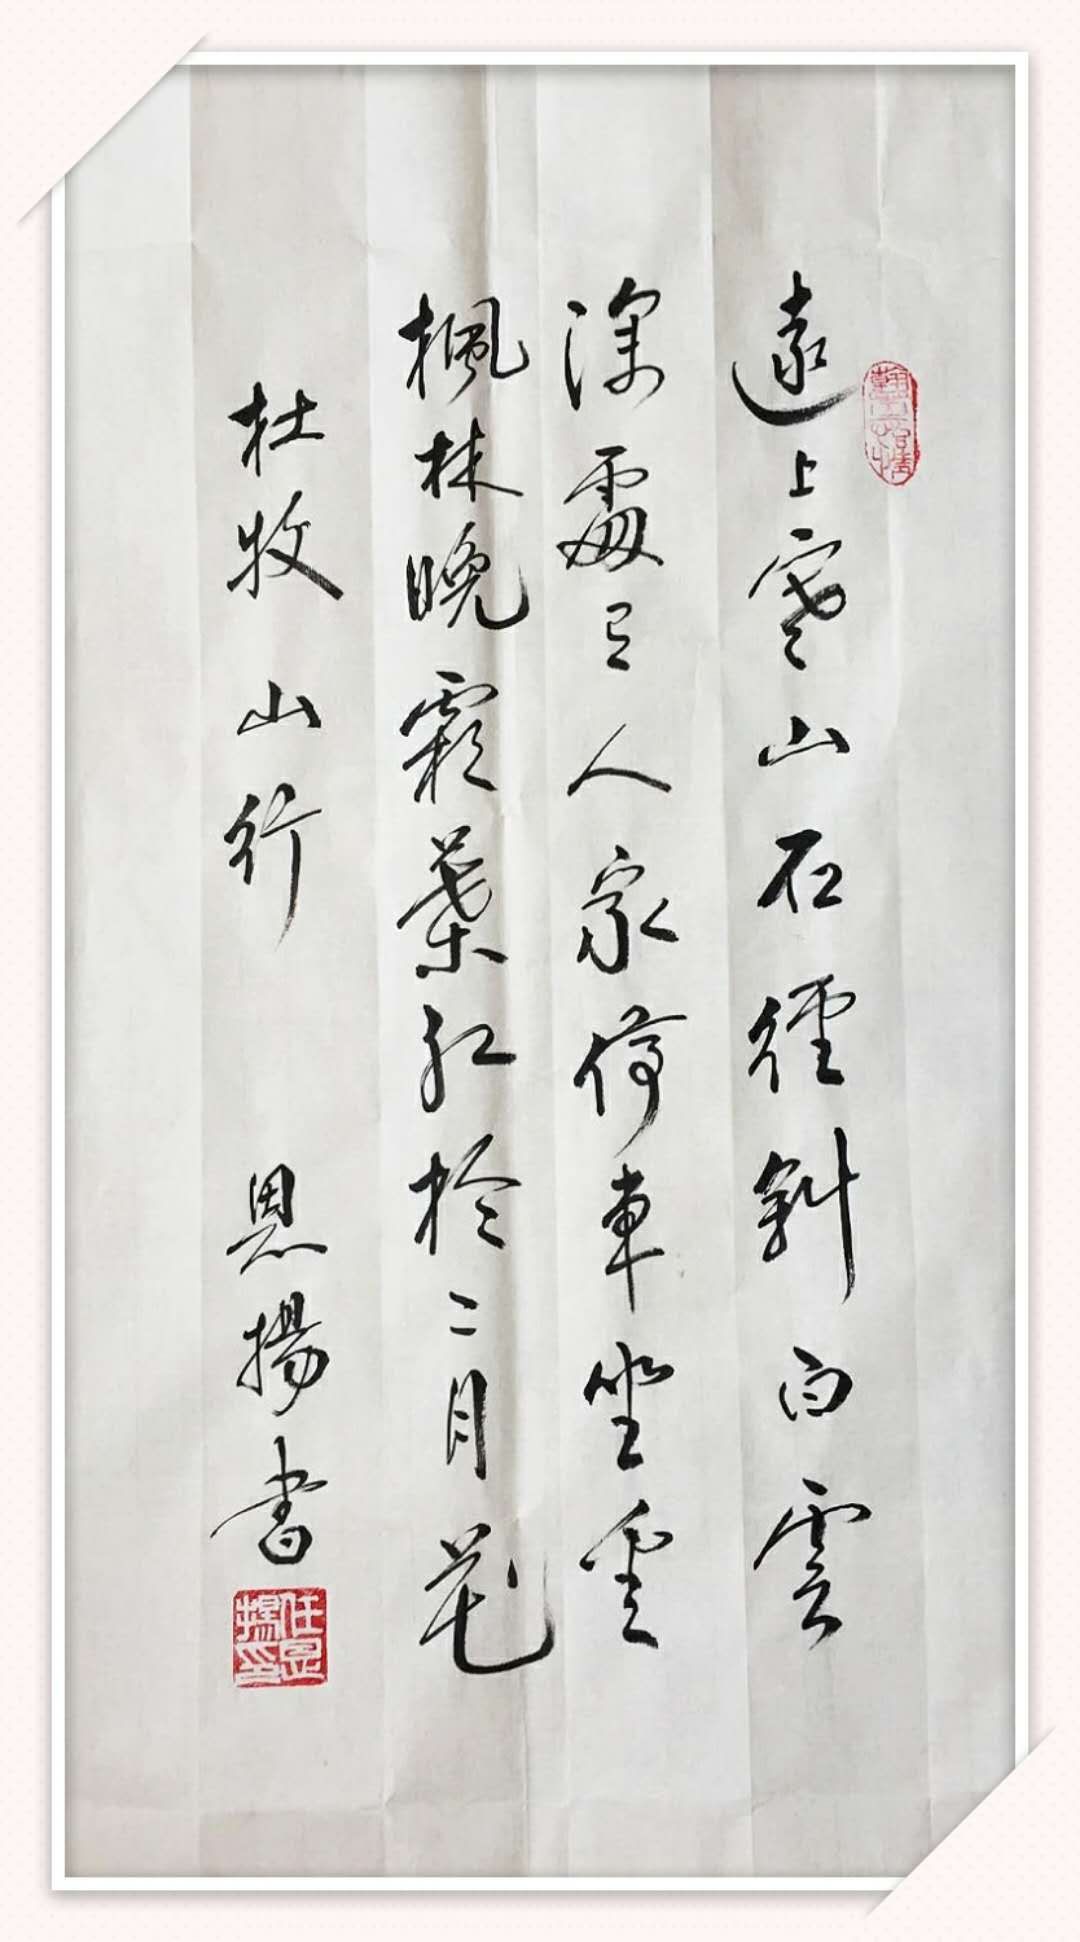 翰墨怡情
遠上寒山石徑斜白雲
深處有人家停車坐愛
楓林晚霜葉紅於二月花
杜牧 山行 恩揚書
任恩揚印